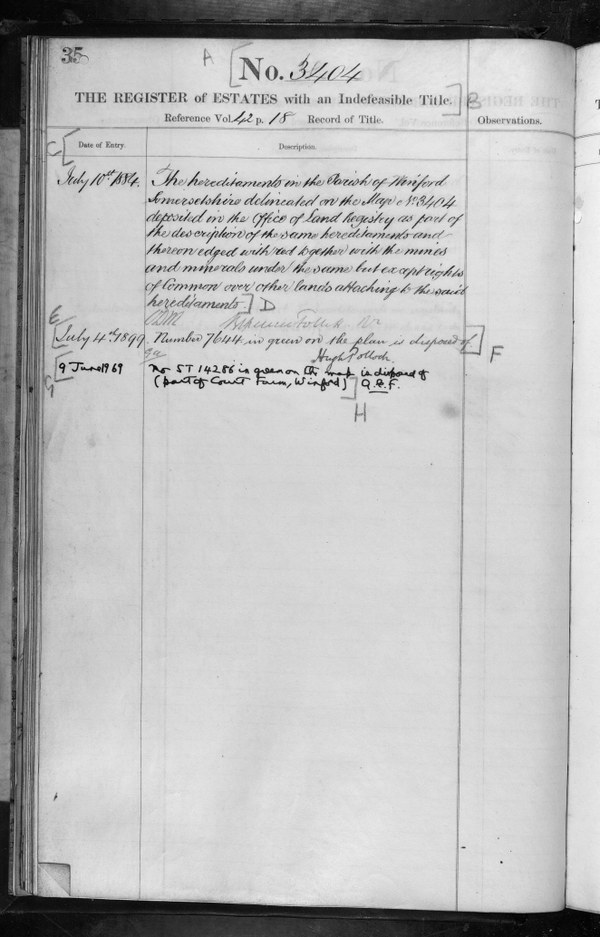 35
A [ No. 3404
THE REGISTER of ESTATES with an Indefeasible Title. ] B
Reference Vol. 42 p. 18 Record of Title.
Observations.
C [ Date of Entry.
Description.
July 10th 1884. The hereditaments in the Parish of Winford
Somersetshire delineated on the Map No. 3404
deposited in the Office of Land Registry as part of
the description of the same hereditaments and
thereon edged with red together with the mines
and minerals under the same but except rights
of Common over other lands attaching to the said
hereditaments. ] D
E
[ July 4th 1899. Number 7644 in green on the plan is disposed of ] F
Hugh Pollock.
G [ 9 June 1969 No ST 14286 in green on the map is disposed of
(part of Court Farm, Winford) ] Q.E.F.
H